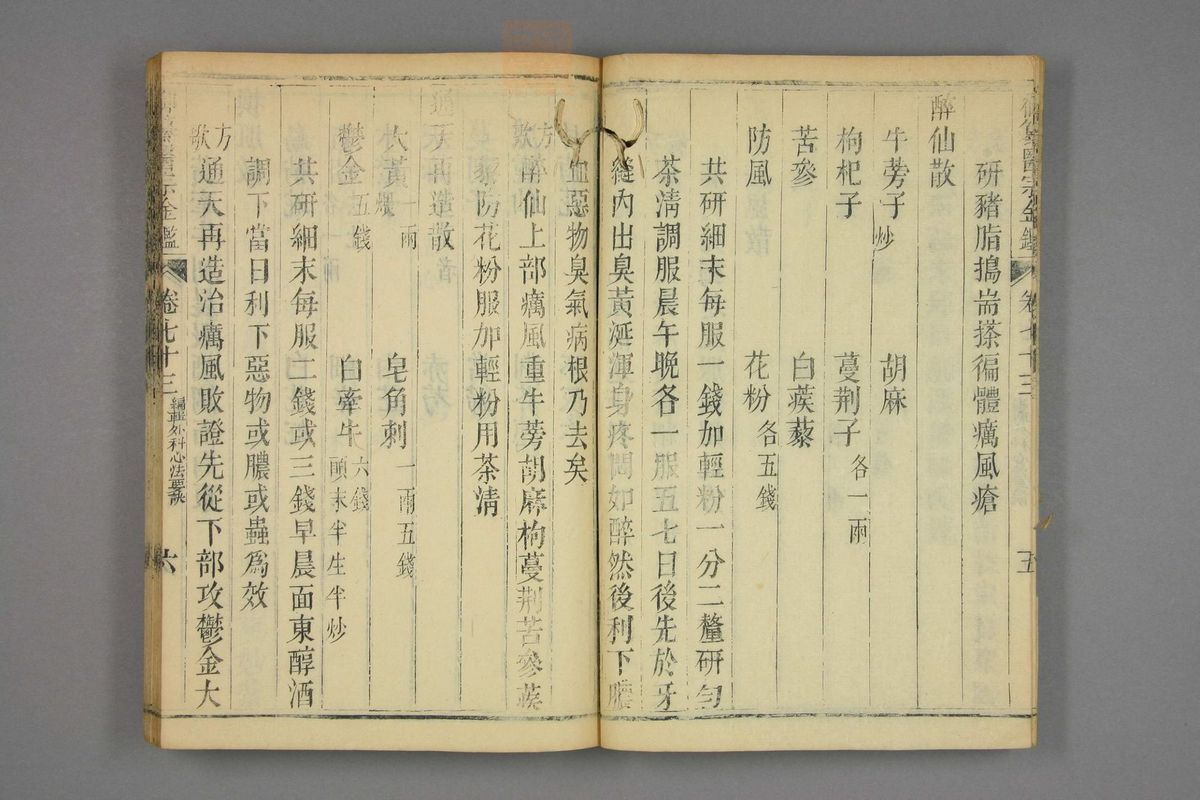 御纂醫宗金鑑 卷七十三 五
研豬脂搗耑搽徧體癘風瘡
醉仙散
牛蒡子炒 胡麻
枸杞子 蔓荆子各一兩
苦參 白蒺藜
防風 花粉各五錢
共研細末每服一錢加輕粉一分二釐研勻
茶清調服晨午晚各一服五七日後先於牙
縫內出臭黃涎渾身疼悶如醉然後利下膿
血惡物臭氣病根乃去矣
方歌 醉仙上部癘風重牛蒡胡麻枸蔓荆苦參蒺
藜防花粉服加輕粉用茶清
通天再造散
大黃煨一兩 皂角刺一兩五錢
鬱金五錢 白牽牛六錢頭末半生半炒
共研細末每服二錢或三錢早晨面東醇酒
調下當日利下惡物或膿或蟲爲效
方歌 通天再造治癘風敗證先從下部攻鬱金大
御纂醫宗金鑑 卷七十三 編輯外科心法要訣 六